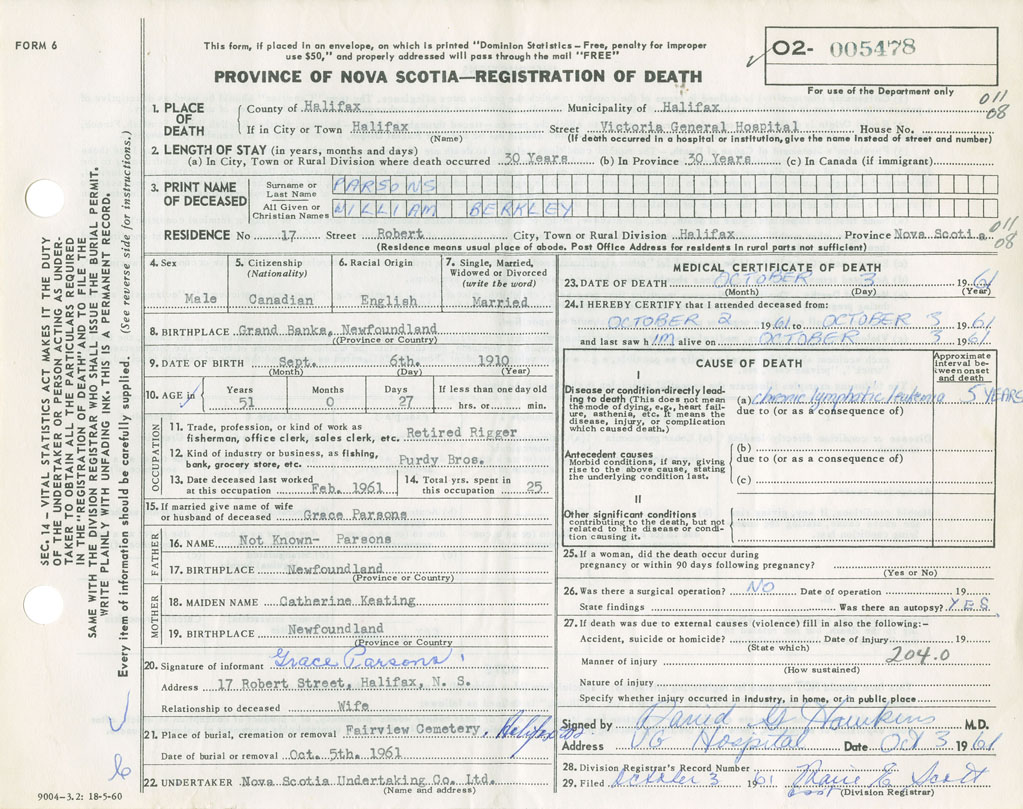 FORM 6
This form, if placed in an envelope, on which is printed "Dominion Statistics – Free, penalty for improper
use $50," and properly addressed will pass through the mail "FREE"
PROVINCE OF NOVA SCOTIA—REGISTRATION OF DEATH
02- 005478
For use of the Department only
011
08
1. PLACE OF DEATH
County of Halifax Municipality of Halifax
If in City or Town Halifax Street Victoria General Hospital House No.
(Name) (If death occurred in a hospital or institution, give the name instead of street and number)
2. LENGTH OF STAY (in years, months and days)
(a) In City, Town or Rural Division where death occurred 30 Years (b) In Province 30 Years (c) In Canada (if immigrant)
3. PRINT NAME OF DECEASED
Surname or Last Name PARSONS
All Given or Christian Names WILLIAM BERKLEY
RESIDENCE No 17 Street Robert City, Town or Rural Division Halifax Province Nova Scotia
011
08
(Residence means usual place of abode. Post Office Address for residents in rural parts not sufficient)
4. Sex
Male
5. Citizenship
(Nationality)
Canadian
6. Racial Origin
English
7. Single, Married,
Widowed or Divorced
(write the word)
Married
8. BIRTHPLACE Grand Banks, Newfoundland
(Province or Country)
9. DATE OF BIRTH Sept. 6th. 1910
(Month) (Day) (Year)
10. AGE in
Years Months Days If less than one day old
51 0 27 hrs. or min.
OCCUPATION
11. Trade, profession, or kind of work as
fisherman, office clerk, sales clerk, etc. Retired Rigger
12. Kind of industry or business, as fishing,
bank, grocery store, etc. Purdy Bros.
13. Date deceased last worked
at this occupation Feb. 1961
14. Total yrs. spent in
this occupation 25
15. If married give name of wife
or husband of deceased Grace Parsons
FATHER
16. NAME Not Known- Parsons
17. BIRTHPLACE Newfoundland
(Province or Country)
MOTHER
18. MAIDEN NAME Catherine Keating
19. BIRTHPLACE Newfoundland
(Province or Country
20. Signature of informant Grace Parsons
Address 17 Robert Street, Halifax, N. S.
Relationship to deceased Wife
21. Place of burial, cremation or removal Fairview Cemetery, Halifax
Date of burial or removal Oct. 5th. 1961
22. UNDERTAKER Nova Scotia Undertaking Co. Ltd.
(Name and address)
MEDICAL CERTIFICATE OF DEATH
23. DATE OF DEATH OCTOBER 3 1961
(Month) (Day) (Year)
24. I HEREBY CERTIFY that I attended deceased from:
OCTOBER 2 1961 to OCTOBER 3 1961
and last saw him alive on OCTOBER 3 1961
CAUSE OF DEATH
Approximate
interval be-
tween onset
and death
I
Disease or condition directly lead-
ing to death (This does not mean
the mode of dying, e.g., heart fail-
ure, asthenia, etc. It means the
disease, injury, or complication
which caused death.)
(a) chronic lymphatic leukemia 5 YEARS
due to (or as a consequence of)
Antecedent causes
Morbid conditions, if any, giving
rise to the above cause, stating
the underlying condition last.
(b)
due to (or as a consequence of)
(c)
II
Other significant conditions
contributing to the death, but not
related to the disease or condi-
tion causing it.
25. If a woman, did the death occur during
pregnancy or within 90 days following pregnancy?
(Yes or No)
26. Was there a surgical operation? NO Date of operation 19
State findings Was there an autopsy? YES
27. If death was due to external causes (violence) fill in also the following:–
Accident, suicide or homicide? Date of injury 19
(State which)
204.0
Manner of injury
(How sustained)
Nature of injury
Specify whether injury occurred in industry, in home, or in public place
Signed by David G Hawkins M.D.
Address VG Hospital Date Oct 3 1961
28. Division Registrar's Record Number
29. Filed October 3 1961 Marie E. Scott
(Division Registrar)
SEC. 14 – VITAL STATISTICS ACT MAKES IT THE DUTY
OF THE UNDERTAKER OR PERSON ACTING AS UNDER-
TAKER TO OBTAIN ALL THE PARTICULARS REQUIRED
IN THE "REGISTRATION OF DEATH" AND TO FILE THE
SAME WITH THE DIVISION REGISTRAR WHO SHALL ISSUE THE BURIAL PERMIT.
WRITE PLAINLY WITH UNFADING INK. THIS IS A PERMANENT RECORD.
Every item of information should be carefully supplied. (See reverse side for instructions.)
9004-3.2: 18-5-60